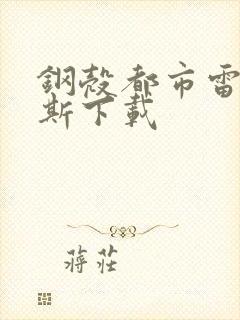 鋼殼都市雷
斯下載
蔣莊